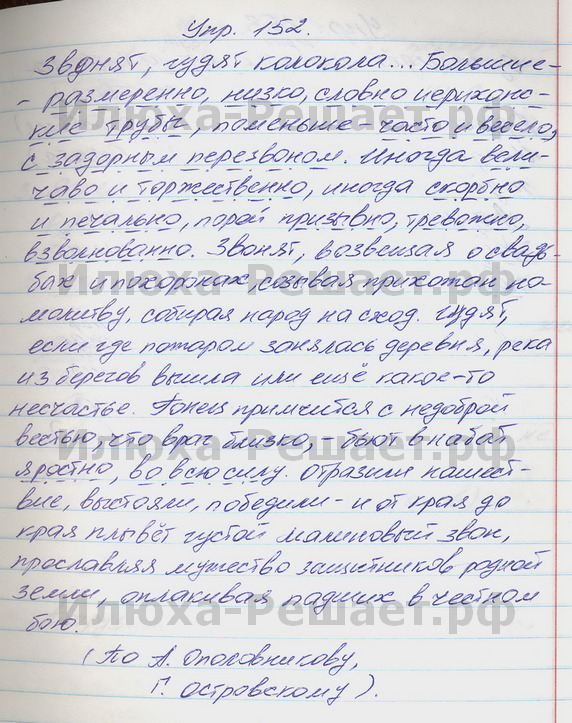 Упр. 152.
Звонят, гудят колокола... Большие -
- размеренно, низко, словно иерихонс-
кие трубы, поменьше часто и весело,
Илюха-Решает.рф
с задорным перезвоном. Иногда вели-
чаво и торжественно, иногда скорбно
и печально, порой призывно, тревожно,
взволнованно. Звонят, возвещая о свадь-
бах и похоронах, созывая прихожан на
Илюха-Решает.рф
молитву, собирая народ на сход. Гудят,
если где пожаром занялась деревня, река
из берегов вышла или ещё какое-то
несчастье. Гонец примчится с недоброй
вестью, что враг близко, - бьют в набат
Илюха-Решает.рф
яростно, во всю силу. Отразили нашест-
вие, выстояли, победили - и от края до
края плывёт густой малиновый звон,
прославляя мужество защитников родной
земли, оплакивая падших в честном
Илюха-Решает.рф
бою.
(По А. Ополовникову,
Г. Островскому).